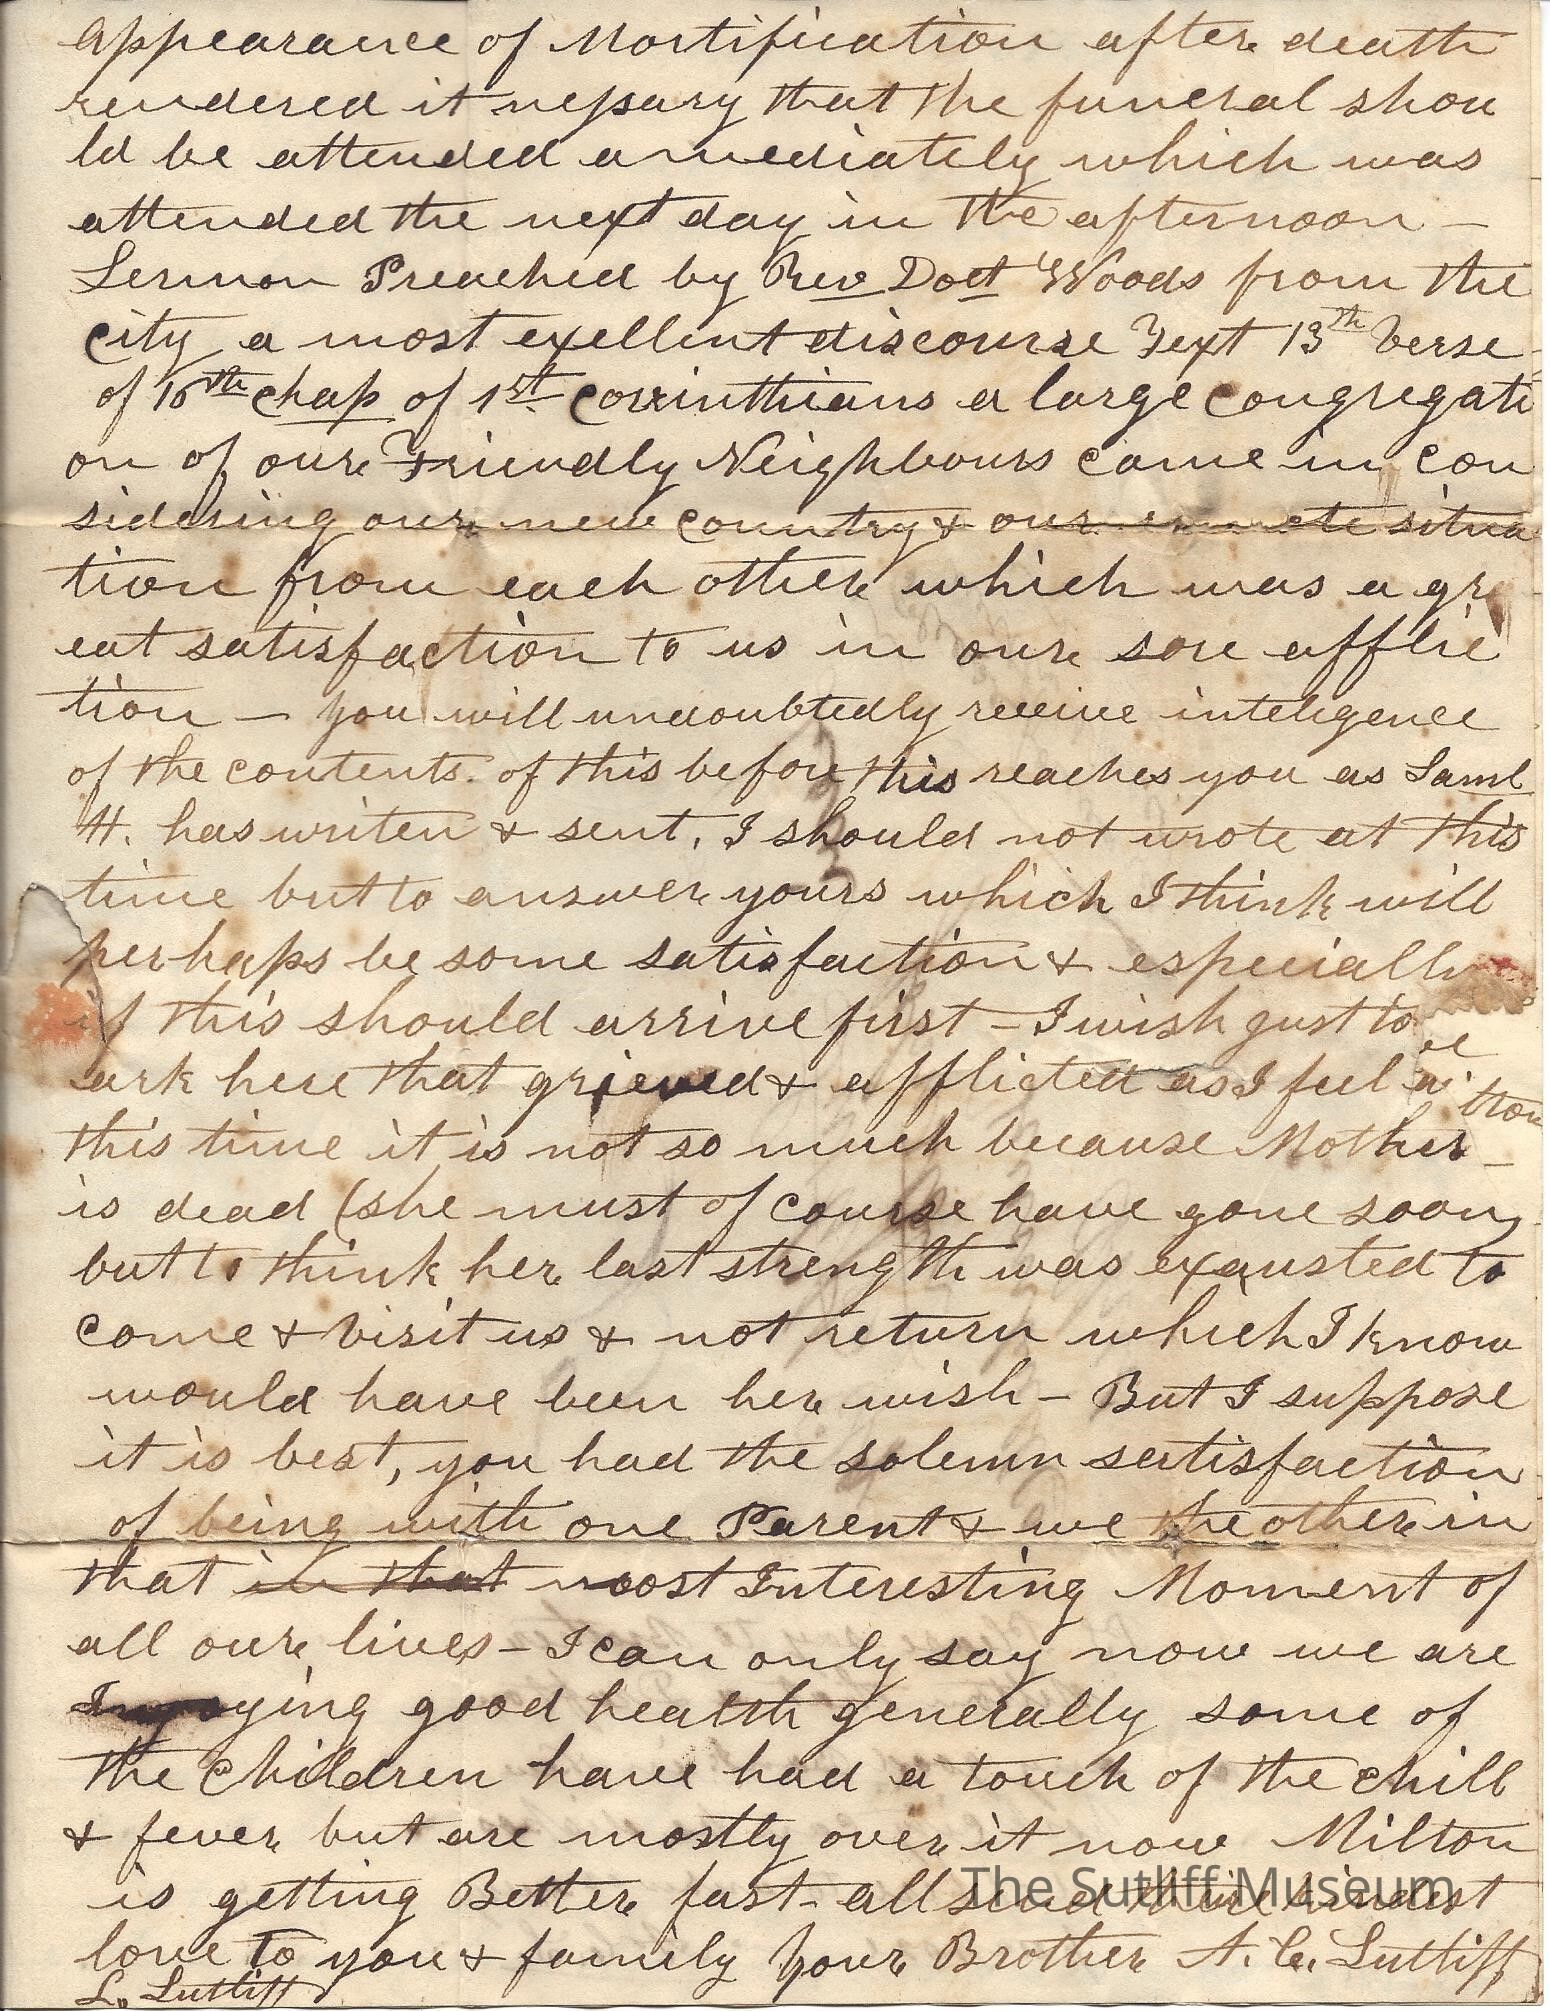 appearance of Mortification after death
rendered it nessary that the funeral shou
ld be attended amediately which was
attended the next day in the afternoon –
Sermon Preached by Rev Doct Woods from the
City a most exellent discourse Text 13th Verse
of chap of 1st Corrinthians a large congregati
on of our Friendly Neighbours came in con
sidering our new country & our situa
tion from each other which was a gr
eat satisfaction to us in our sore afflic
tion – you will undoubtedly receive inteligence
of the contents of this before this reaches you as Saml
H. has writen & sent, I should not wrote at this
time but to answer yours which I think will
perhaps be some satisfaction & especially
if this should arrive first – I wish just to
ark here that grieved & afflicted as I feel
this time it is not so much because Mother –
is dead (she must of course have gone soon,
but to think her last strength was exausted to
come & visit us & not return which I know
would have been her wish – But I suppose
it is best, you had the solemn satisfaction
of being with one Parent & we the other in
that in that most Interesting Moment of
all our lives – I can only say now we are
good health generally some of
the Children have had a touch of the chill
& fever but are mostly over it now Milton
is getting Better fast – all send their kindest
love to you & family Your Brother A. C. Sutliff
L. Sutliff
The Sutliff Museum